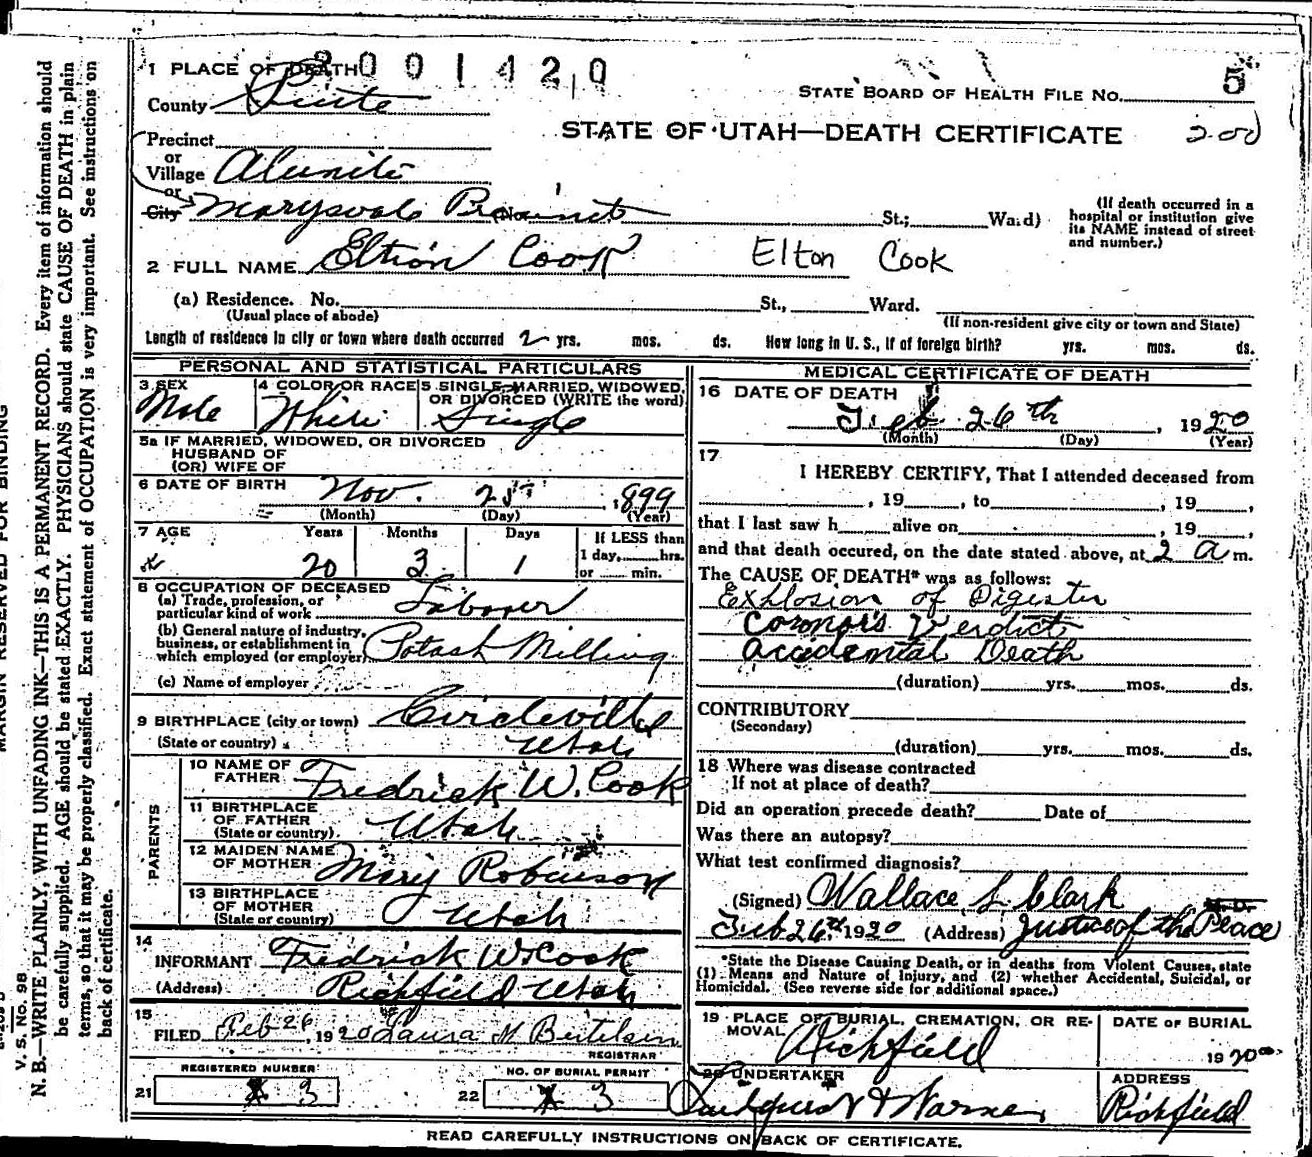 MARGIN RESERVED FOR BINDING
V. S. No. 98
N. B.—WRITE PLAINLY, WITH UNFADING INK—THIS IS A PERMANENT RECORD. Every item of information should
be carefully supplied. AGE should be stated EXACTLY. PHYSICIANS should state CAUSE OF DEATH in plain
terms, so that it may be properly classified. Exact statement of OCCUPATION is very important. See instructions on
back of certificate.
1 PLACE OF DEATH 2001420
County Piute
STATE BOARD OF HEALTH FILE NO. 5
STATE OF UTAH—DEATH CERTIFICATE 200
Precinct
or
Village Alunite
or
City Marysvale Precinct St.; Ward)
(If death occurred in a
hospital or institution give
its NAME instead of street
and number.)
2 FULL NAME Eltion Cook Elton Cook
(a) Residence. No. St., Ward.
(Usual place of abode) (If non-resident give city or town and State)
Length of residence in city or town where death occurred 2 yrs. mos. ds. How long in U. S., if of foreign birth? yrs. mos. ds.
PERSONAL AND STATISTICAL PARTICULARS
3 SEX 4 COLOR OR RACE 5 SINGLE, MARRIED, WIDOWED,
OR DIVORCED (WRITE the word)
Male White Single
5a IF MARRIED, WIDOWED, OR DIVORCED
HUSBAND OF
(OR) WIFE OF
6 DATE OF BIRTH Nov. 25th, 1899
(Month) (Day) (Year)
7 AGE Years Months Days If LESS than
1 day, hrs.
20 3 1 or min.
8 OCCUPATION OF DECEASED
(a) Trade, profession, or
particular kind of work Laborer
(b) General nature of industry,
business, or establishment in
which employed (or employer) Potash Milling
(c) Name of employer
9 BIRTHPLACE (city or town) Circleville
(State or country) Utah
PARENTS
10 NAME OF
FATHER Fredrick W. Cook
11 BIRTHPLACE
OF FATHER
(State or country) Utah
12 MAIDEN NAME
OF MOTHER Mary Robinson
13 BIRTHPLACE
OF MOTHER
(State or country) Utah
14
INFORMANT Fredrick W. Cook
(Address) Richfield Utah
15
FILED Feb 26, 1920 Laura M Bertelsen
REGISTRAR
REGISTERED NUMBER NO. OF BURIAL PERMIT
21 3 22 3
MEDICAL CERTIFICATE OF DEATH
16 DATE OF DEATH
Feb 26th, 1920
(Month) (Day) (Year)
17
I HEREBY CERTIFY, That I attended deceased from
, 19 , to , 19 ,
that I last saw h alive on , 19 ,
and that death occured, on the date stated above, at 2 a m.
The CAUSE OF DEATH* was as follows:
Explosion of Digester
Coronor's Verdict
Accidental Death
(duration) yrs. mos. ds.
CONTRIBUTORY
(Secondary)
(duration) yrs. mos. ds.
18 Where was disease contracted
If not at place of death?
Did an operation precede death? Date of
Was there an autopsy?
What test confirmed diagnosis?
(Signed) Wallace L Clark M. D.
Feb 26th, 1920 (Address) Justice of the Peace
*State the Disease Causing Death, or in deaths from Violent Causes, state
(1) Means and Nature of Injury, and (2) whether Accidental, Suicidal, or
Homicidal. (See reverse side for additional space.)
19 PLACE OF BURIAL, CREMATION, OR RE-
MOVAL
Richfield
DATE OF BURIAL
1920
20 UNDERTAKER
& Warner
ADDRESS
Richfield
READ CAREFULLY INSTRUCTIONS ON BACK OF CERTIFICATE.